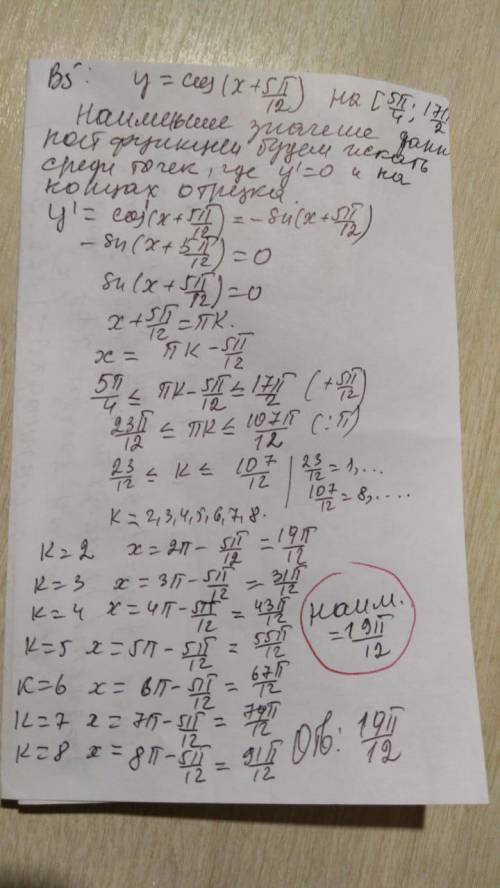 B5: y = cos(x + 5π/12) на [5π/4; 17π/2
Наименьшее значение данн
ной функцией будем искать
среди точек, где y'=0 и на
концах отрезка.
y' = cos'(x + 5π/12) = -sin(x + 5π/12)
-sin(x + 5π/12) = 0
sin(x + 5π/12) = 0
x + 5π/12 = πk.
x = πk - 5π/12
5π/4 ≤ πk - 5π/12 ≤ 17π/2 (+5π/12)
23π/12 ≤ πk ≤ 107π/12 (:π)
23/12 ≤ k ≤ 107/12 | 23/12 = 1,...
107/12 = 8,....
k = 2,3,4,5,6,7,8.
k=2 x = 2π - 5π/12 = 19π/12
k=3 x = 3π - 5π/12 = 31π/12
k=4 x = 4π - 5π/12 = 43π/12
k=5 x = 5π - 5π/12 = 55π/12
k=6 x = 6π - 5π/12 = 67π/12
k=7 x = 7π - 5π/12 = 79π/12
k=8 x = 8π - 5π/12 = 91π/12
наим.
= 19π/12
Отв: 19π/12